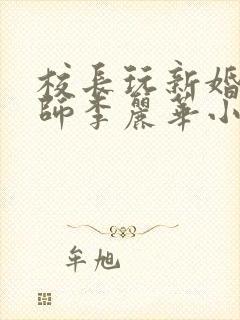 校長玩新婚
師李麗華小
牟旭